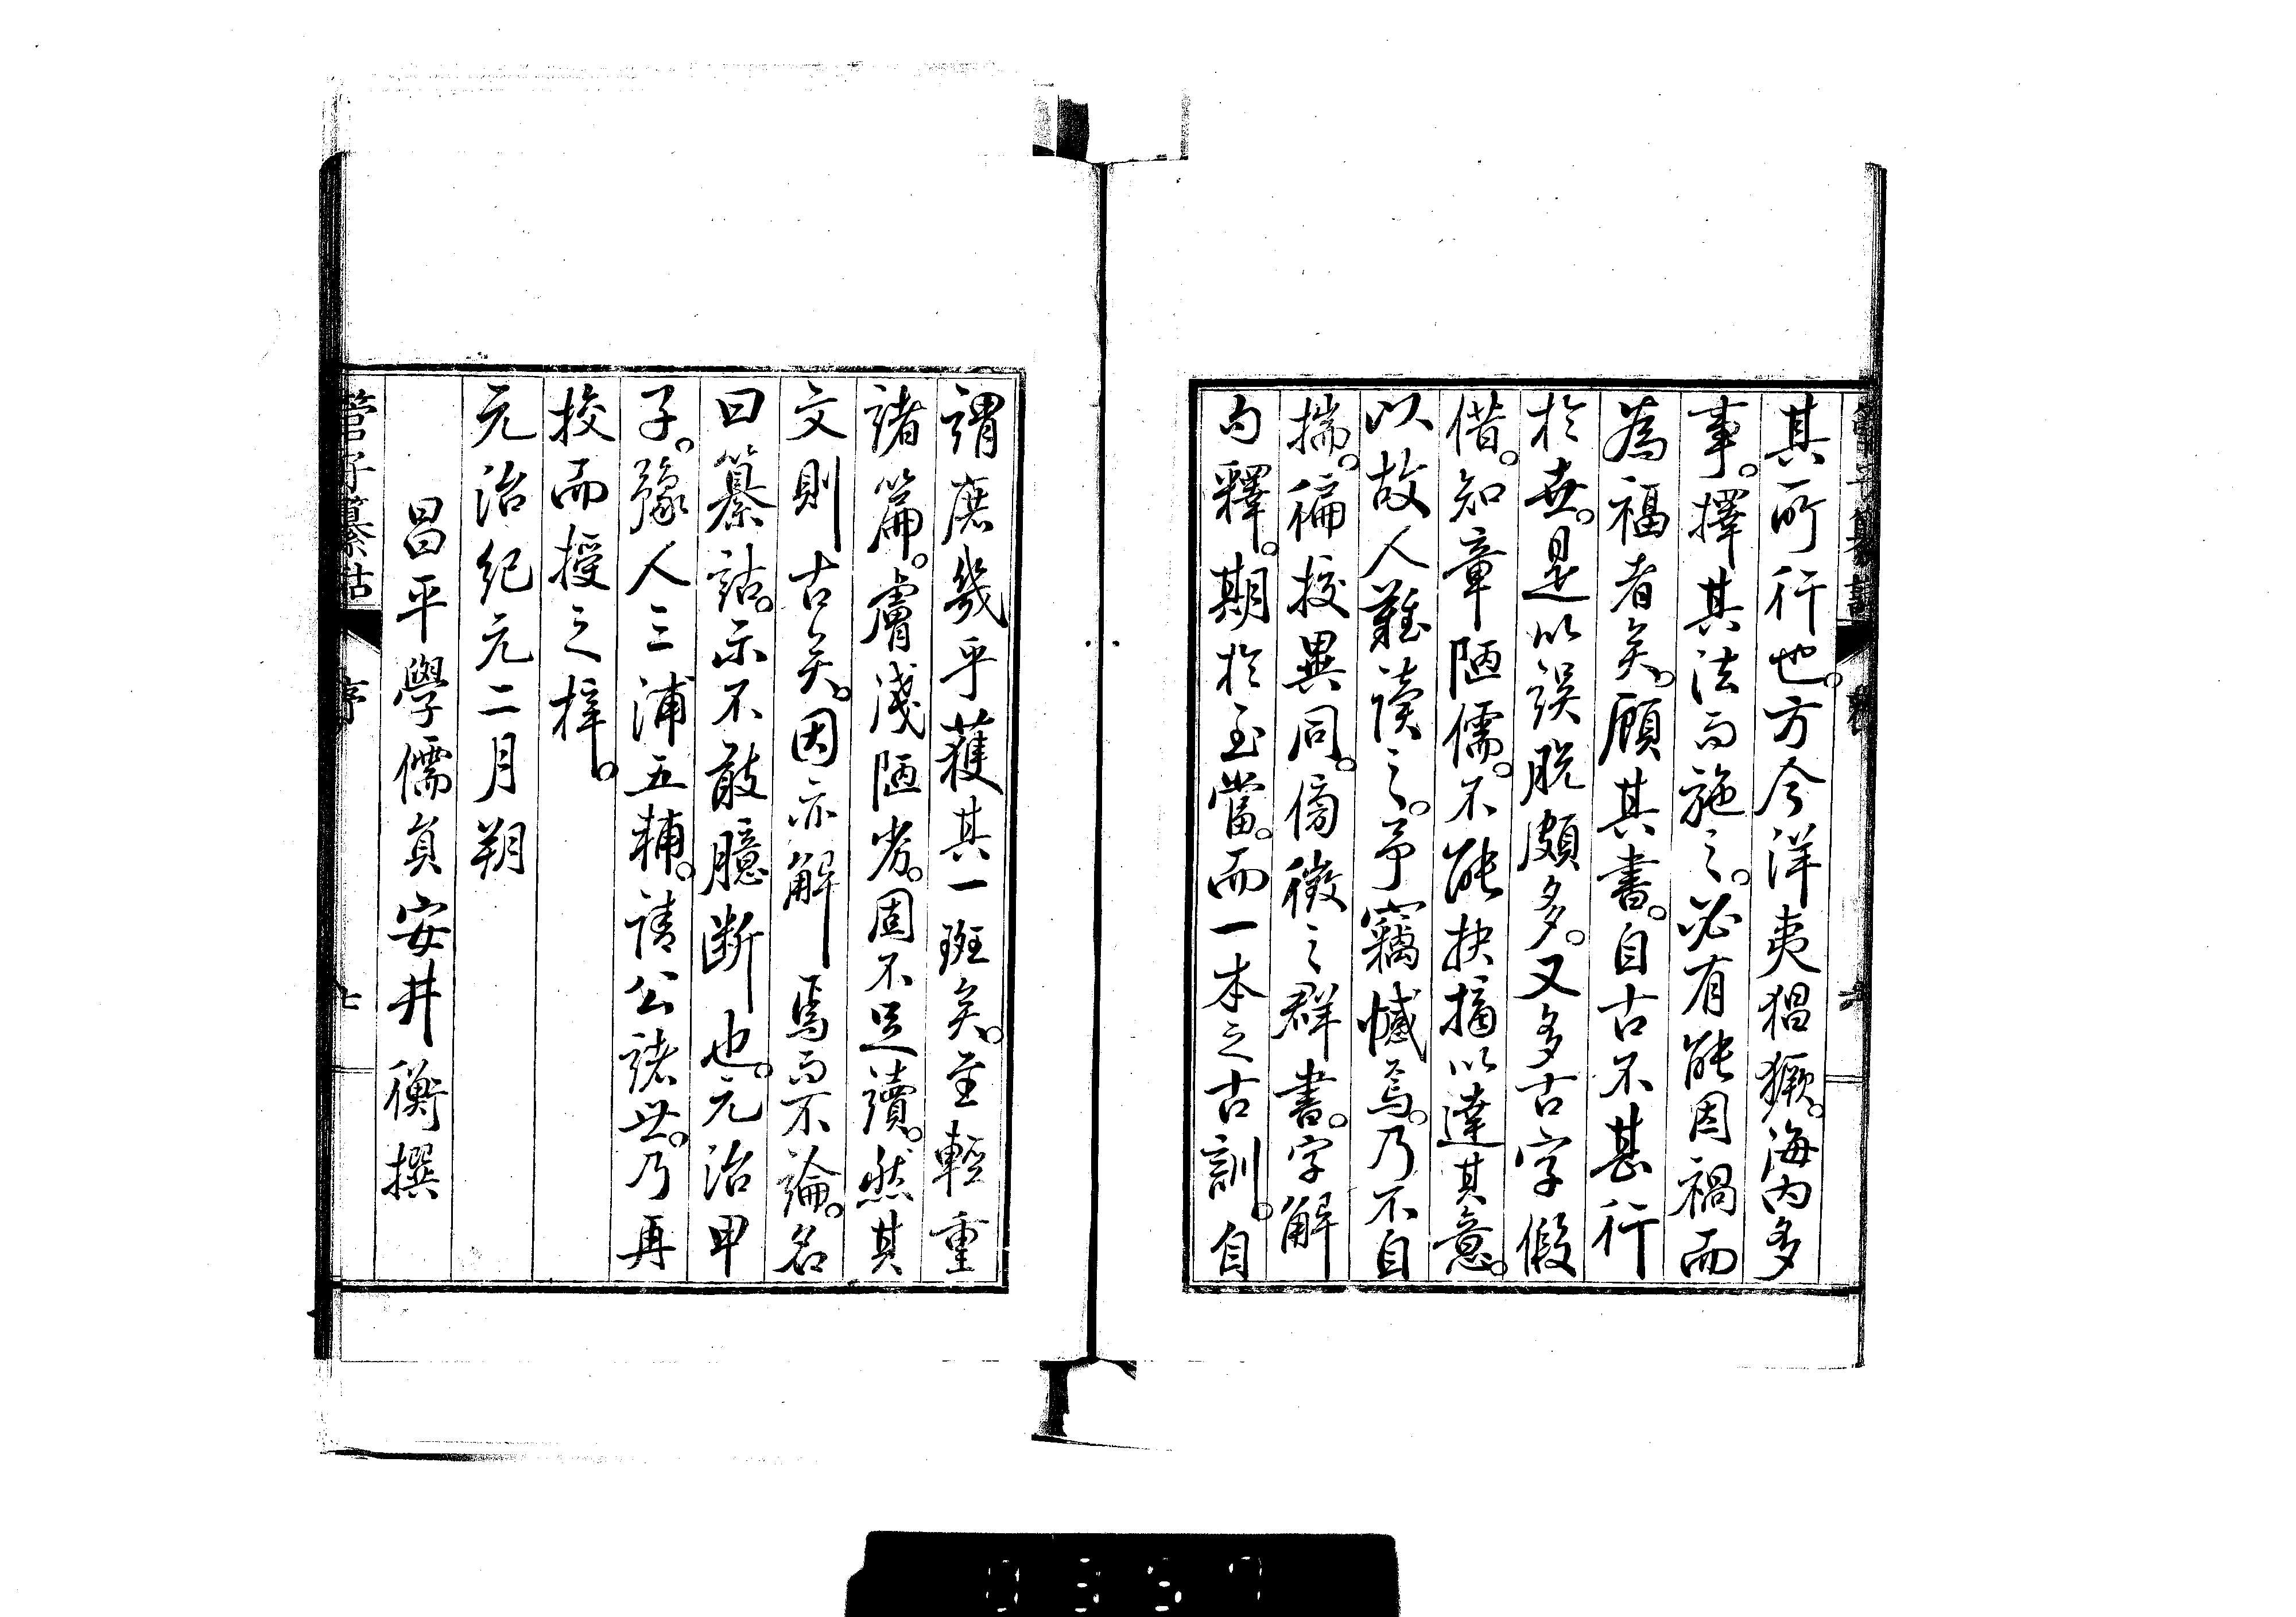 其所行也。方今洋夷猖獗。海内多
事。擇其法而施之。必有能因禍而
為福者矣。顧其書。自古不甚行
於世。是以誤脱頗多。又多古字假
借。知章陋儒。不能抉摘以達其意。
以故人難讀之。予竊憾焉。乃不自
揣。徧挍異同。傍徵之群書。字解
句釋。期於至當。而一本之古訓。自
謂庶幾乎獲其一斑矣。至輕重
諸篇。膚淺陋劣。固不足讀。然其
文則古矣。因亦解焉而不論。名
曰纂詁。示不敢臆断也。元治甲
子。豫人三浦五輔。請公諸世。乃再
挍而授之梓。
元治紀元二月朔
昌平學儒員安井衡撰
管子纂詁 序 七